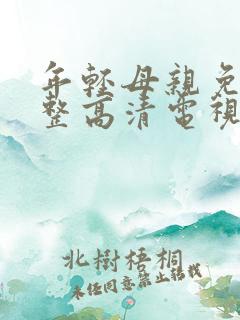 年輕母親免
整高清電視
北樹梧桐
未任同意禁止转载